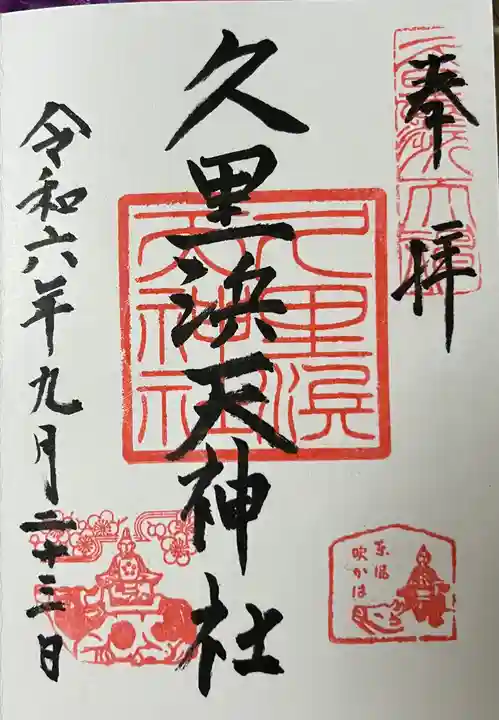 奉拝
久里浜天神社
久里浜天神社
令和六年九月二十三日
東風
吹かば